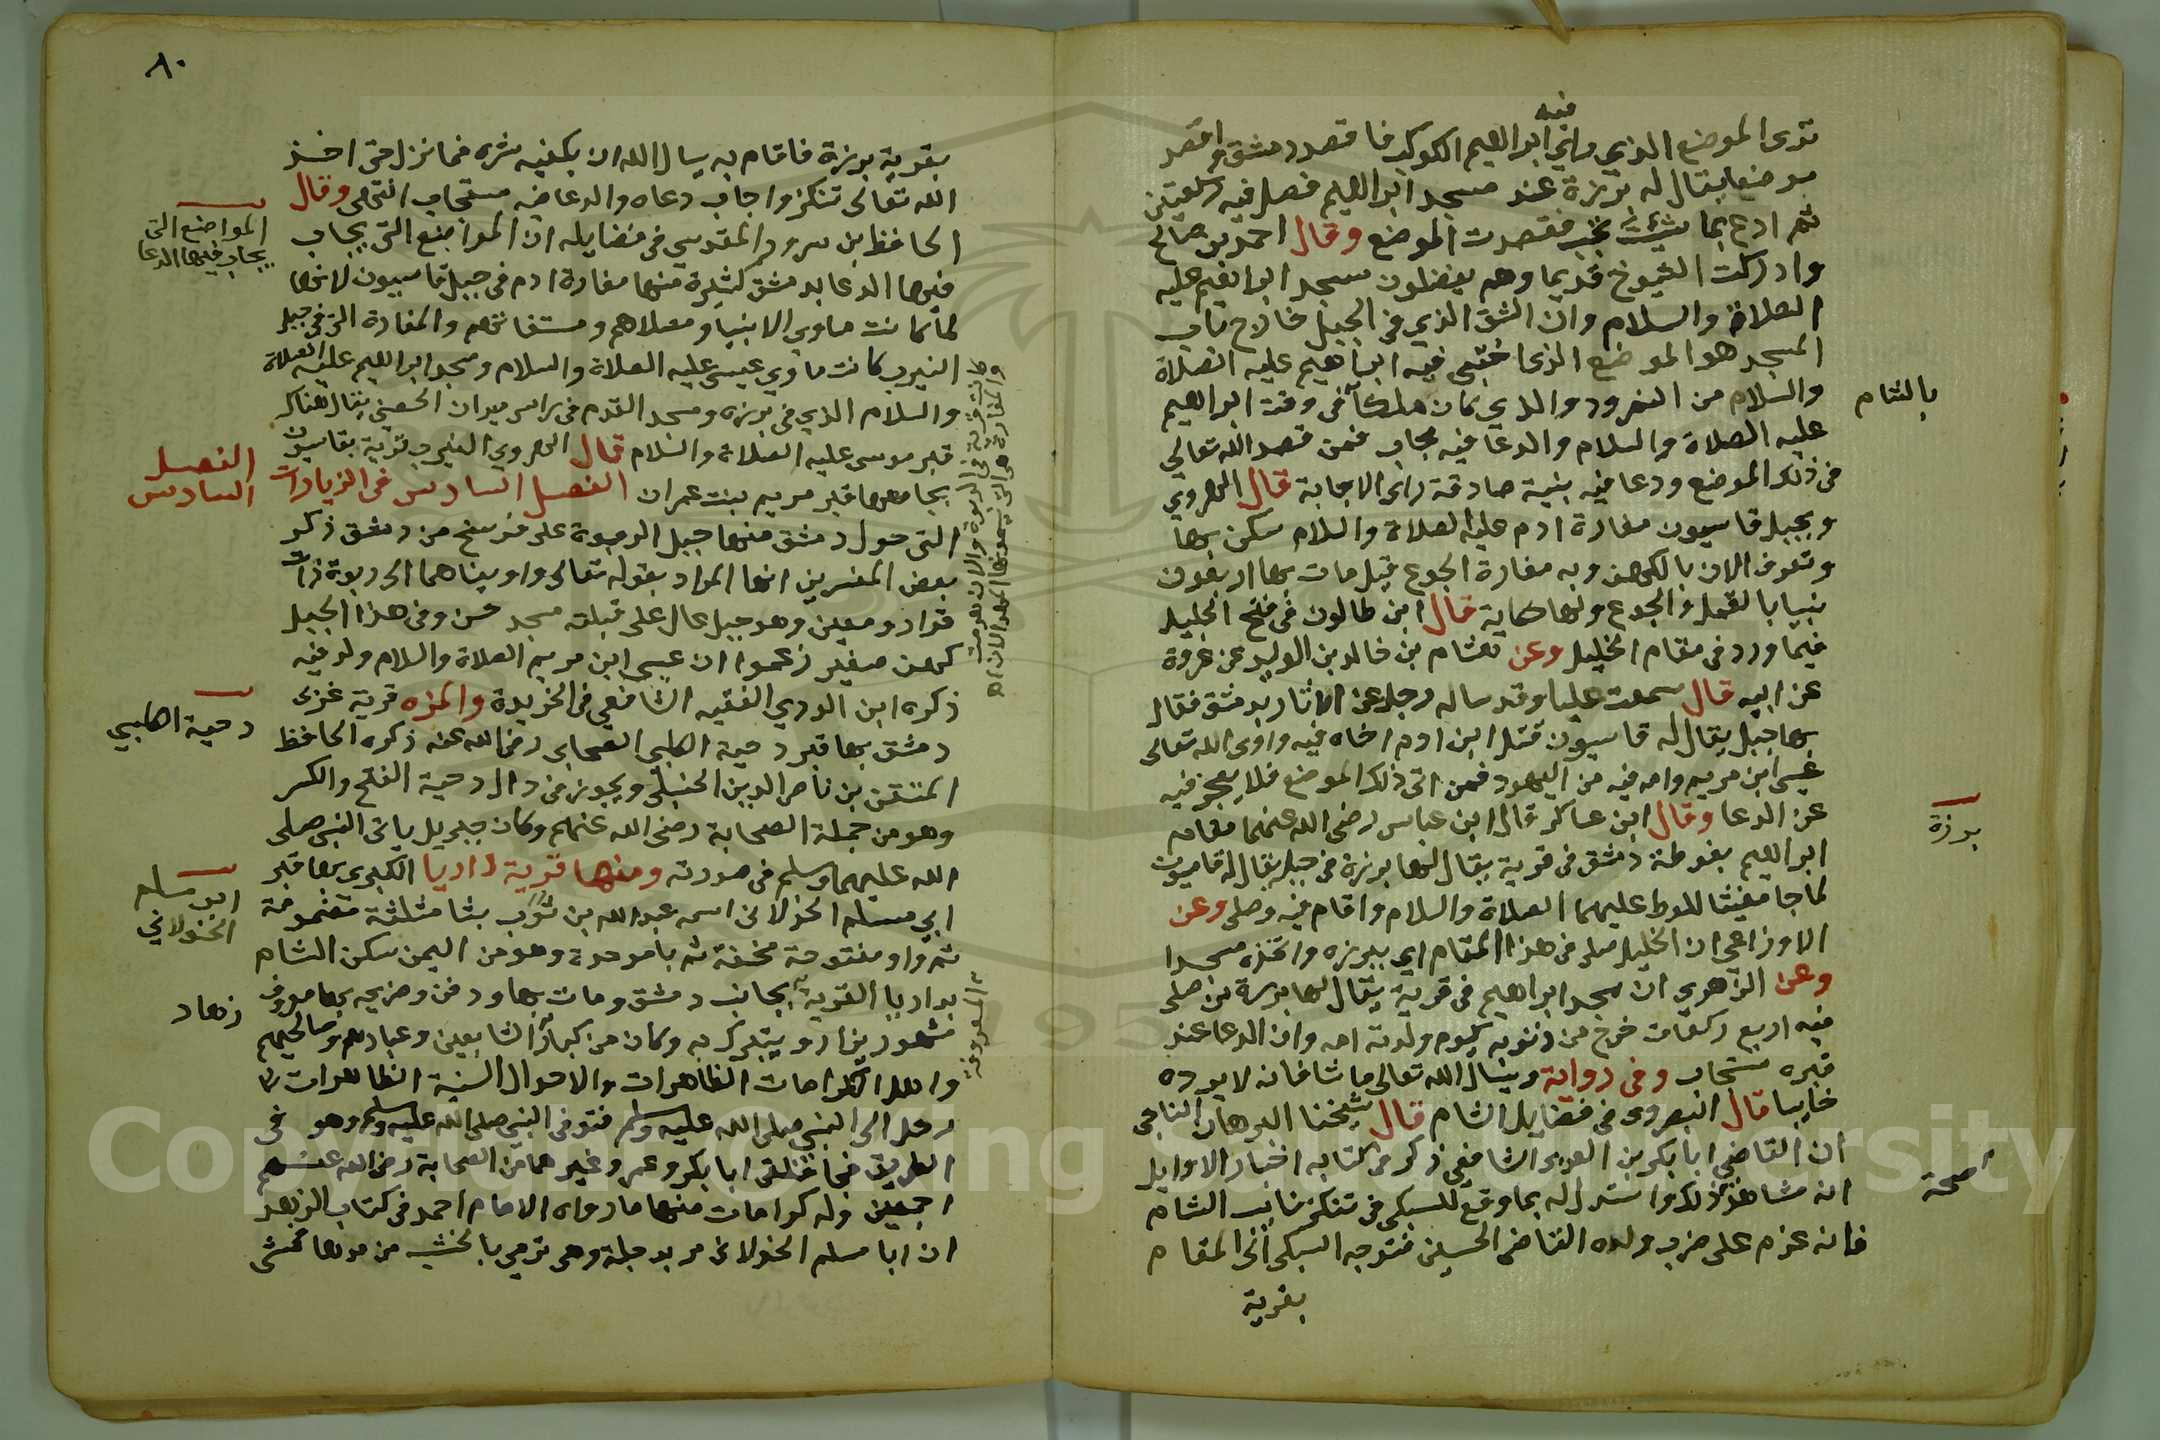 فيه
ترى الموضع الذي راي ابراهيم الكوكب فاقصد دمشق واقصد
موضعا يقال له برزة عند مسجد ابراهيم فصل فيه ركعتين
ثم ادع بما شئت تجب فقصدت الموضع وقال احمد بن صالح
وادركت الشيوخ قديما وهم يفضلون مسجد ابراهيم عليه
الصلاة والسلام وان الشق الذي في الجبل خارج باب
المسجد هو الموضع الذي اختبى فيه ابراهيم عليه الصلاة
والسلام من النمرود والذي كان ملكا في وقت ابراهيم
بالشام
عليه الصلاة والسلام والدعا فيه مجاب فمن قصد الله تعالى
في ذلك الموضع ودعا فيه بنية صادقة راى الاجابة قال الهروي
وبجبل قاسيون مغارة ادم عليه الصلاة والسلام سكن بها
وتعرف الان بالكهف وبه مغارة الجوع قيل مات بها اربعون
نبيا بالقمل والجوع ولها حكاية قال ابن طالون في فتح الجليل
فيما ورد في مقام الخليل وعن هشام بن خالد بن الوليد عن عروة
عن ابيه قال سمعت عليا وقد ساله رجل عن الاثار بدمشق فقال
بها جبل يقال له قاسيون قتل ابن ادم اخاه فيه واوى الله تعالى
عيسى ابن مريم وامه فيه من اليهود فمن اتى ذلك الموضع فلا يعجز فيه
عن الدعا وقال ابن عساكر قال ابن عباس رضي الله عنهما مقام
برزة
ابراهيم بغوطة دمشق في قرية يقال لها برزة في جبل يقال له قاسيون
لما جا مغيثا للوط عليهما الصلاة والسلام واقام فيه وصلى وعن
الاوزاعي ان الخليل صلى في هذا المقام اي ببرزه واتخذه مسجدا
وعن الزهري ان مسجد ابراهيم في قرية يقال لها برزة من صلى
فيه اربع ركعات خرج من ذنوبه كيوم ولدته امه وان الدعا عند
قبره مستجاب وفي رواية ويسال الله تعالى ما شا فانه لا يرده
خايبا قال البصروي في فضايل الشام قال شيخنا البرهان الناجي
ان القاضي ابا بكر بن العربي الشافعي ذكر في كتابه اخبار الاوايل
انه شاهد ذلك واستدل له بما وقع للسبكي في تنكز نايب الشام
فانه عزم على ضرب ولده القاضي الحسين فتوجه السبكي الى المقام
بقرية
٨٠
بقرية برزة فاقام به يسال الله ان يكفيه شره فما نزل حتى اخذ
الله تعالى تنكز واجاب دعاه والدعا فيه مستجاب انتهى وقال
الحافظ بن سرور المقدسي في فضايله ان المواضع التي يجاب
المواضع التي
يجاب فيها الدعا
فيها الدعا بدمشق كثيرة منها مغارة ادم في جبل قاسيون لانها
لما كانت ماوي الانبيا ومصلاهم ومستغاثهم والمغارة التي في جبل
النيرب كانت ماوي عيسى عليه الصلاة والسلام ومسجد ابراهيم عليه الصلاة
والسلام الذي في برزه ومسجد القدم في راس ميدان الحصى يقال هناك
قبر موسى عليه الصلاة والسلام قال الهروي النيرب قرية بقاسيون
بجامعها قبر مريم بنت عمران الفصل السادس في الزيارات
الفصل
السادس
التي حول دمشق منها جبل الربوة على فرسخ من دمشق ذكر
بعض المفسرين انها المراد بقوله تعالى واويناهما الى ربوة ذات
قرار ومعين وهو جبل عال على قبلته مسجد حسن وفي هذا الجبل
كهف صغير زعموا ان عيسى ابن مريم الصلاة والسلام ولد فيه
ذكره ابن الوردي الفقيه الشافعي في الخريدة والمزه قرية غربي
دحية الكلبي
دمشق بها قبر دحية الكلبي الصحابي رضي الله عنه ذكره الحافظ
المتقن بن ناصر الدين الحنبلي ويجوز في دال دحية الفتح والكسر
وهو من جملة الصحابة رضي الله عنهم وكان جبريل ياتي النبي صلى
الله عليهما وسلم في صورته ومنها قرية داريا الكبرى بها قبر
ابو مسلم
الخولاني
ابي مسلم الخولاني اسمه عبد الله بن ثوب بثا مثلثة مضمومة
ثم واو مفتوحة مخففة ثم با موحدة وهو من اليمن سكن الشام
بداريا القرية بجانب دمشق ومات بها ودفن وضريحه بها معروف
المعروفة
زهاد
مشهور يزار ويتبرك به وكان من كبار التابعين وعبادهم وصالحيهم
واهل الكرامات الظاهرات والاحوال السنية الظاهرات
رحل الى النبي صلى الله عليه وسلم فتوفي النبي صلى الله عليه وسلم وهو في
الطريق فجا فلقي ابا بكر وعمر وغيرهما من الصحابة رضي الله عنهم
اجمعين وله كرامات منها ما رواه الامام احمد في كتاب الزهد
ان ابا مسلم الخولاني مر بدجلة وهي ترمي بالخشب من مدها فمشى